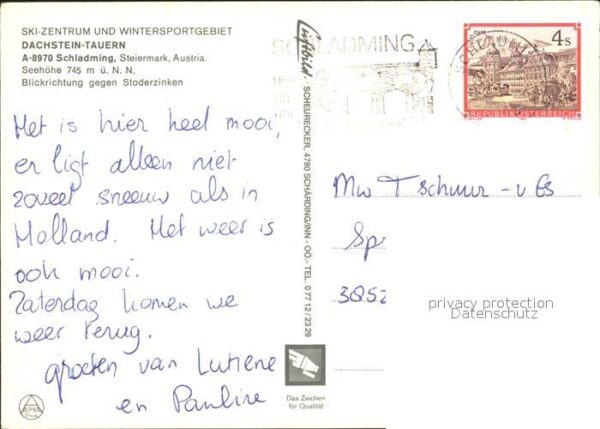 SKI-ZENTRUM UND WINTERSPORTGEBIET
DACHSTEIN-TAUERN
A-8970 Schladming, Steiermark, Austria.
Seehöhe 745 m ü. N. N.
Blickrichtung gegen Stoderzinken
Het is hier heel mooi,
er ligt alleen niet
zoveel sneeuw als in
Holland. Het weer is
ook mooi.
Zaterdag komen we
weer terug.
groeten van Lutiene
en Pauline
Luftbild · SCHEURECKER, 4780 SCHÄRDING/INN - OÖ · TEL. 0 77 12 / 23 29
SCHLADMING
SCHLADMING
4 S
REPUBLIK ÖSTERREICH
Mw T Schuur - v Es
Sp
3852
privacy protection
Datenschutz
Das Zeichen
für Qualität